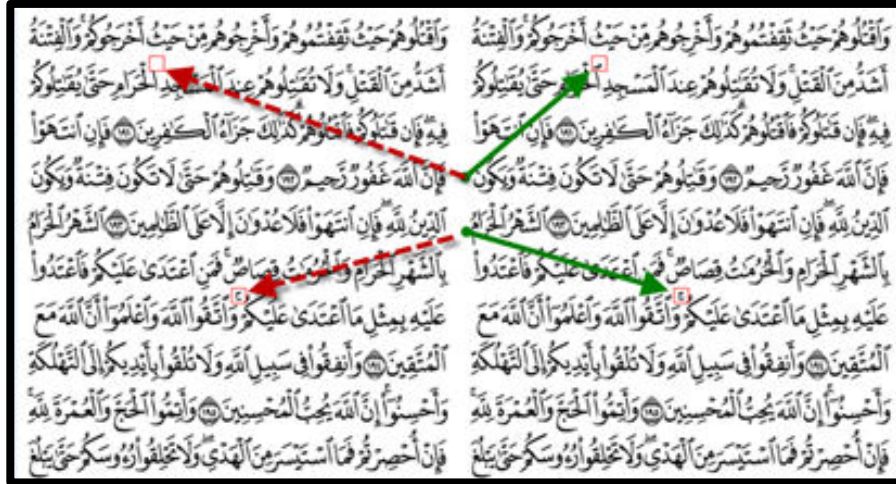 وَٱقْتُلُوهُمْ حَيْثُ ثَقِفْتُمُوهُمْ وَأَخْرِجُوهُم مِّنْ حَيْثُ أَخْرَجُوكُمْ ۚ وَٱلْفِتْنَةُ
أَشَدُّ مِنَ ٱلْقَتْلِ ۚ وَلَا تُقَٰتِلُوهُمْ عِندَ ٱلْمَسْجِدِ ٱلْحَرَامِ حَتَّىٰ يُقَٰتِلُوكُمْ
فِيهِ ۖ فَإِن قَٰتَلُوكُمْ فَٱقْتُلُوهُمْ ۗ كَذَٰلِكَ جَزَآءُ ٱلْكَٰفِرِينَ ١٩١ فَإِنِ ٱنتَهَوْا۟
فَإِنَّ ٱللَّهَ غَفُورٌ رَّحِيمٌ ١٩٢ وَقَٰتِلُوهُمْ حَتَّىٰ لَا تَكُونَ فِتْنَةٌ وَيَكُونَ
ٱلدِّينُ لِلَّهِ ۖ فَإِنِ ٱنتَهَوْا۟ فَلَا عُدْوَٰنَ إِلَّا عَلَى ٱلظَّٰلِمِينَ ١٩٣ ٱلشَّهْرُ ٱلْحَرَامُ
بِٱلشَّهْرِ ٱلْحَرَامِ وَٱلْحُرُمَٰتُ قِصَاصٌ ۚ فَمَنِ ٱعْتَدَىٰ عَلَيْكُمْ فَٱعْتَدُوا۟
عَلَيْهِ بِمِثْلِ مَا ٱعْتَدَىٰ عَلَيْكُمْ ۚ وَٱتَّقُوا۟ ٱللَّهَ وَٱعْلَمُوٓا۟ أَنَّ ٱللَّهَ مَعَ
ٱلْمُتَّقِينَ ١٩٤ وَأَنفِقُوا۟ فِى سَبِيلِ ٱللَّهِ وَلَا تُلْقُوا۟ بِأَيْدِيكُمْ إِلَى ٱلتَّهْلُكَةِ
وَأَحْسِنُوٓا۟ ۛ إِنَّ ٱللَّهَ يُحِبُّ ٱلْمُحْسِنِينَ ١٩٥ وَأَتِمُّوا۟ ٱلْحَجَّ وَٱلْعُمْرَةَ لِلَّهِ ۚ
فَإِنْ أُحْصِرْتُمْ فَمَا ٱسْتَيْسَرَ مِنَ ٱلْهَدْىِ ۖ وَلَا تَحْلِقُوا۟ رُءُوسَكُمْ حَتَّىٰ يَبْلُغَ
وَٱقْتُلُوهُمْ حَيْثُ ثَقِفْتُمُوهُمْ وَأَخْرِجُوهُم مِّنْ حَيْثُ أَخْرَجُوكُمْ ۚ وَٱلْفِتْنَةُ
أَشَدُّ مِنَ ٱلْقَتْلِ ۚ وَلَا تُقَٰتِلُوهُمْ عِندَ ٱلْمَسْجِدِ ٱلْحَرَامِ حَتَّىٰ يُقَٰتِلُوكُمْ
فِيهِ ۖ فَإِن قَٰتَلُوكُمْ فَٱقْتُلُوهُمْ ۗ كَذَٰلِكَ جَزَآءُ ٱلْكَٰفِرِينَ ١٩١ فَإِنِ ٱنتَهَوْا۟
فَإِنَّ ٱللَّهَ غَفُورٌ رَّحِيمٌ ١٩٢ وَقَٰتِلُوهُمْ حَتَّىٰ لَا تَكُونَ فِتْنَةٌ وَيَكُونَ
ٱلدِّينُ لِلَّهِ ۖ فَإِنِ ٱنتَهَوْا۟ فَلَا عُدْوَٰنَ إِلَّا عَلَى ٱلظَّٰلِمِينَ ١٩٣ ٱلشَّهْرُ ٱلْحَرَامُ
بِٱلشَّهْرِ ٱلْحَرَامِ وَٱلْحُرُمَٰتُ قِصَاصٌ ۚ فَمَنِ ٱعْتَدَىٰ عَلَيْكُمْ فَٱعْتَدُوا۟
عَلَيْهِ بِمِثْلِ مَا ٱعْتَدَىٰ عَلَيْكُمْ ۚ وَٱتَّقُوا۟ ٱللَّهَ وَٱعْلَمُوٓا۟ أَنَّ ٱللَّهَ مَعَ
ٱلْمُتَّقِينَ ١٩٤ وَأَنفِقُوا۟ فِى سَبِيلِ ٱللَّهِ وَلَا تُلْقُوا۟ بِأَيْدِيكُمْ إِلَى ٱلتَّهْلُكَةِ
وَأَحْسِنُوٓا۟ ۛ إِنَّ ٱللَّهَ يُحِبُّ ٱلْمُحْسِنِينَ ١٩٥ وَأَتِمُّوا۟ ٱلْحَجَّ وَٱلْعُمْرَةَ لِلَّهِ ۚ
فَإِنْ أُحْصِرْتُمْ فَمَا ٱسْتَيْسَرَ مِنَ ٱلْهَدْىِ ۖ وَلَا تَحْلِقُوا۟ رُءُوسَكُمْ حَتَّىٰ يَبْلُغَ